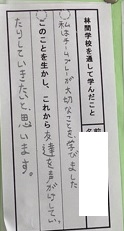 林間学校を通して学んだこと
名前
私はチームプレーが大切なことを学びました
このことを生かし、これから友達を声がけしてい
たりしていきたいと思います。